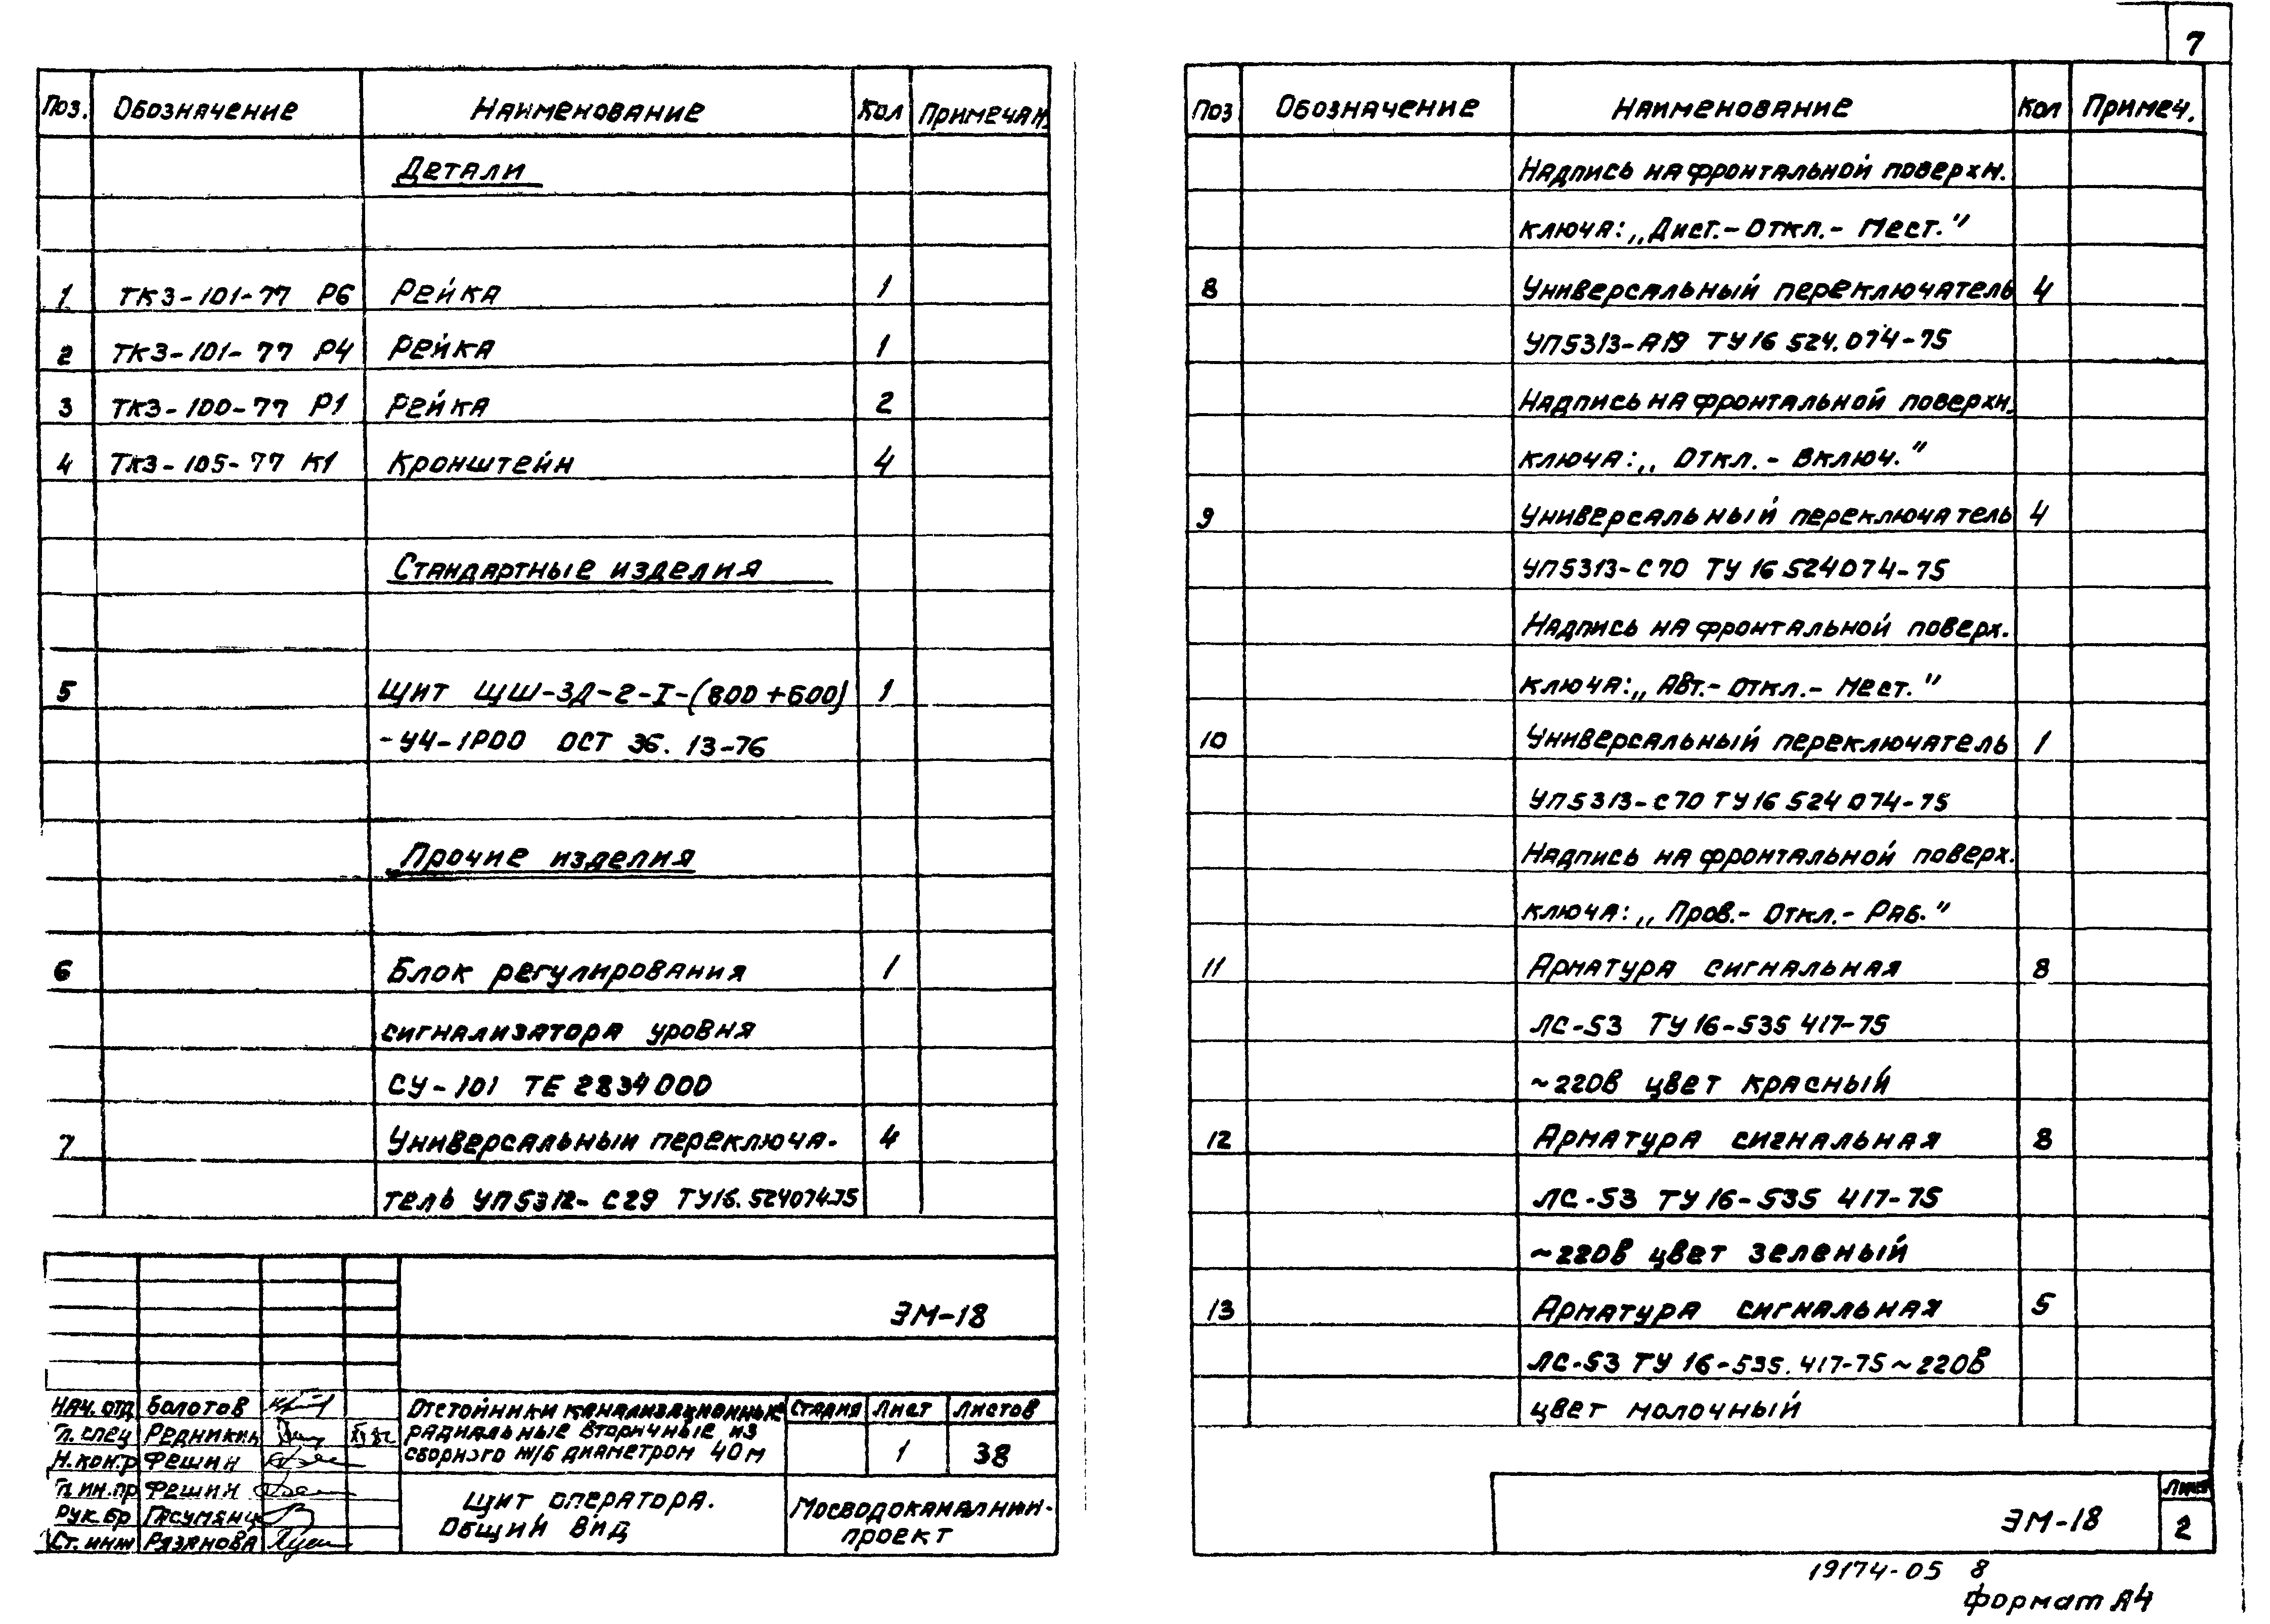 Поз. Обозначение Наименование Кол Примечан.
Детали
1 ТК3-101-77 Р6 Рейка 1
2 ТК3-101-77 Р4 Рейка 1
3 ТК3-100-77 Р1 Рейка 2
4 ТК3-105-77 К1 Кронштейн 4
Стандартные изделия
5 Щит ЩШ-ЗД-2-I-(800+600) 1
-У4-1Р00 ОСТ 36.13-76
Прочие изделия
6 Блок регулирования 1
сигнализатора уровня
СУ-101 ТЕ 2834000
7 Универсальный переключа- 4
тель УП5312-С29 ТУ16.524074-75
ЭМ-18
Нач. отд Болотов
Гл. спец Редникин
Н. контр Фешин
Гл. ин. пр Фешин
Рук. бр Гасумянц
Ст. инж Рязанова
Отстойники канализационные
радиальные вторичные из
сборного ж/б диаметром 40м
Стадия Лист Листов
1 38
Щит оператора.
Общий вид
Мосводоканалнии-
проект
7
Поз Обозначение Наименование Кол Примеч.
Надпись на фронтальной поверхн.
ключа: „Дист.-Откл.-Мест."
8 Универсальный переключатель 4
УП5313-А19 ТУ16 524.074-75
Надпись на фронтальной поверхн.
ключа: „Откл.-Включ."
9 Универсальный переключатель 4
УП5313-С70 ТУ16 524074-75
Надпись на фронтальной поверх.
ключа: „Авт.-Откл.-Мест."
10 Универсальный переключатель 1
УП5313-С70 ТУ16 524 074-75
Надпись на фронтальной поверх.
ключа: „Пров.-Откл.-Раб."
11 Арматура сигнальная 8
ЛС-53 ТУ16-535 417-75
~220В цвет красный
12 Арматура сигнальная 8
ЛС-53 ТУ16-535 417-75
~220В цвет зеленый
13 Арматура сигнальная 5
ЛС-53 ТУ 16-535.417-75~220В
цвет молочный
ЭМ-18
Лист
2
19174-05 8
Формат А4